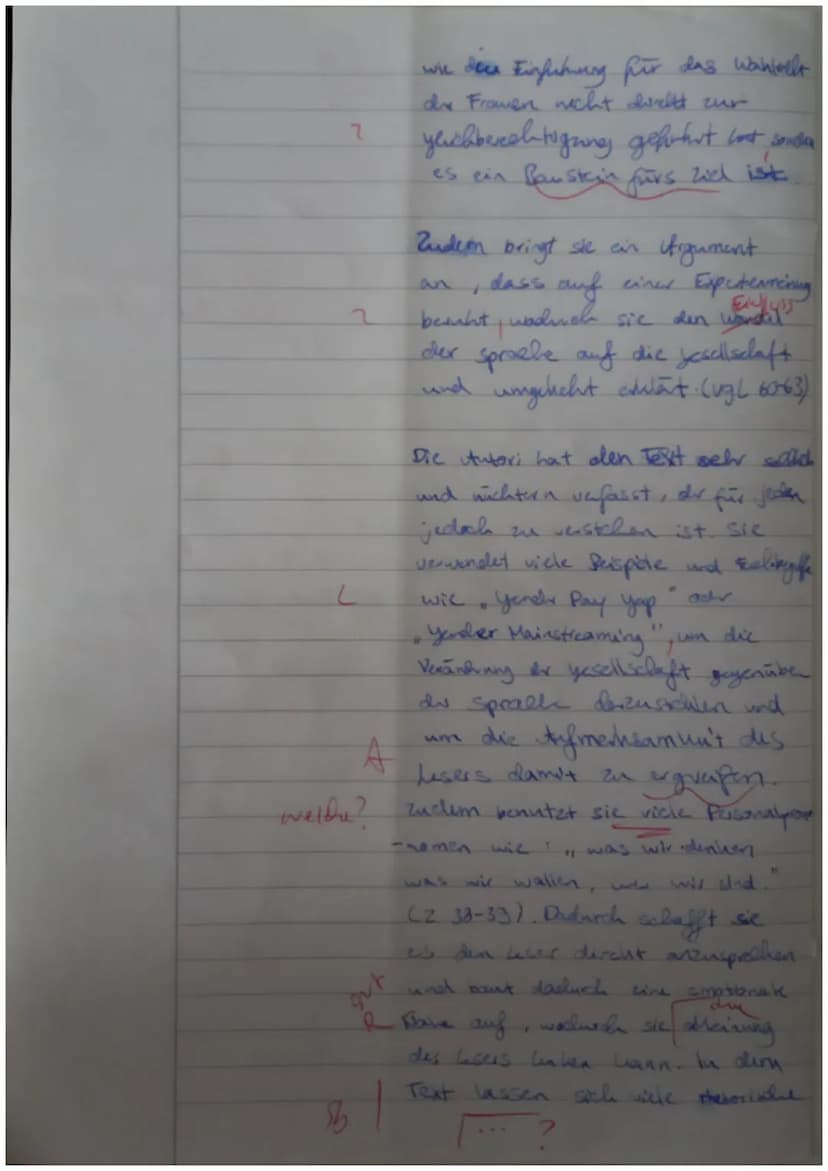 wie die Einführung für das Wahlrecht
der Frauen nicht direkt zur
? gleichberechtigung geführt hat, sondern
es ein Baustein fürs Ziel ist.
Zudem bringt sie ein Argument
an, dass auf einer Expertenmeinung
Einfluss
? beruht, wodurch sie den Wandel
der sprache auf die gesellschaft
und umgekehrt erklärt. (vgl 60-63)
Die Autori hat den Text sehr
und nüchtern verfasst, der für jeden
jedoch zu verstehen ist. Sie
verwendet viele Beispiele und
wie „Gender Pay Gap" oder
„Gender Mainstreaming", um die
Veränderung der gesellschaft gegenüber
der sprache darzustellen und
um die Aufmerksamkeit des
A Lesers damit zu ergreifen.
welche? Zudem benutzt sie viele Personalpro
-nomen wie: „was wir denken
was wir wollen, wer wir sind."
(Z 38-39). Dadurch schafft sie
es den Leser direkt anzusprechen
gut und baut dadurch eine emotionale
die
R auf, wodurch sie Meinung
des Lesers lenken kann. In dem
Sb Text lassen sich viele rhetorische
[... ?